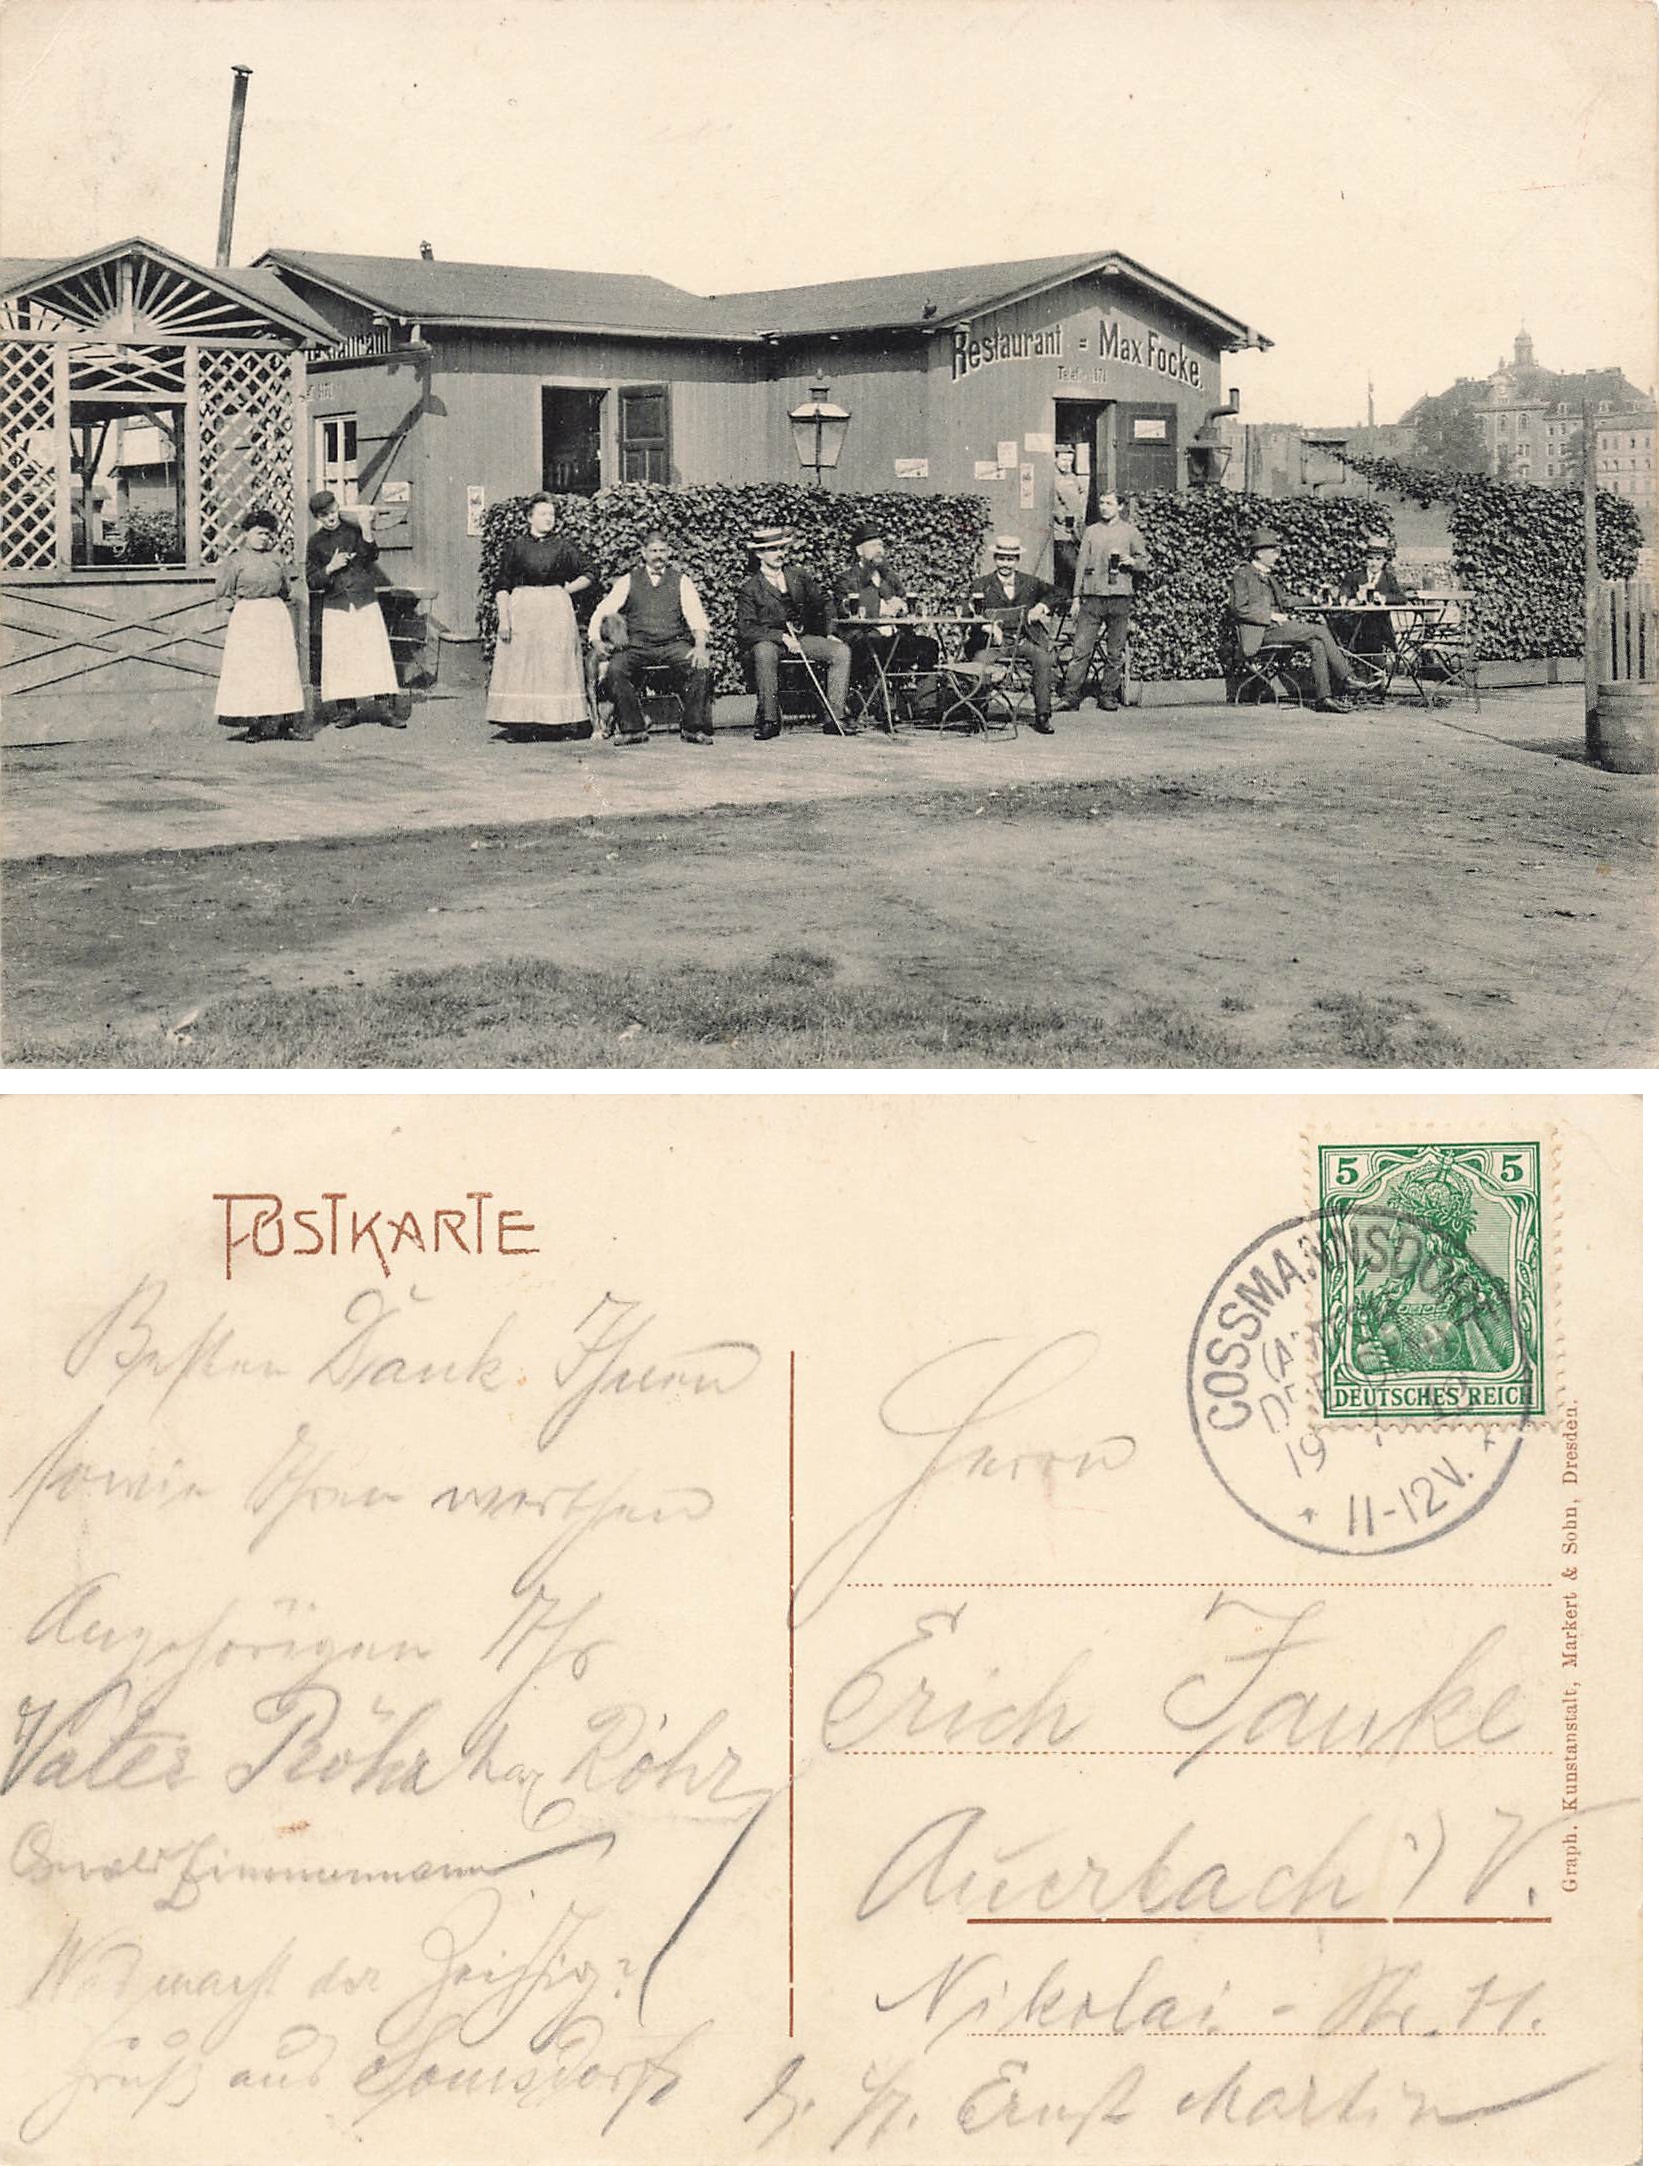 Restaurant
Restaurant = Max Focke.
Telef. 171
POSTKARTE
5 5
DEUTSCHES REICH
COSSMANNSDORF
19
11-12V.
Besten Dank. Ihnen
sowie Ihren werthen
Angehörigen Ihr
Vater Röhr Röhr
Oswald Zimmermann
Was macht der Zeissig?
Gruß aus Somsdorf
Herrn
Erich Janke
Auerbach i/V.
Nikolai-Str. 11.
Ernst Martin
Graph. Kunstanstalt, Markert & Sohn, Dresden.